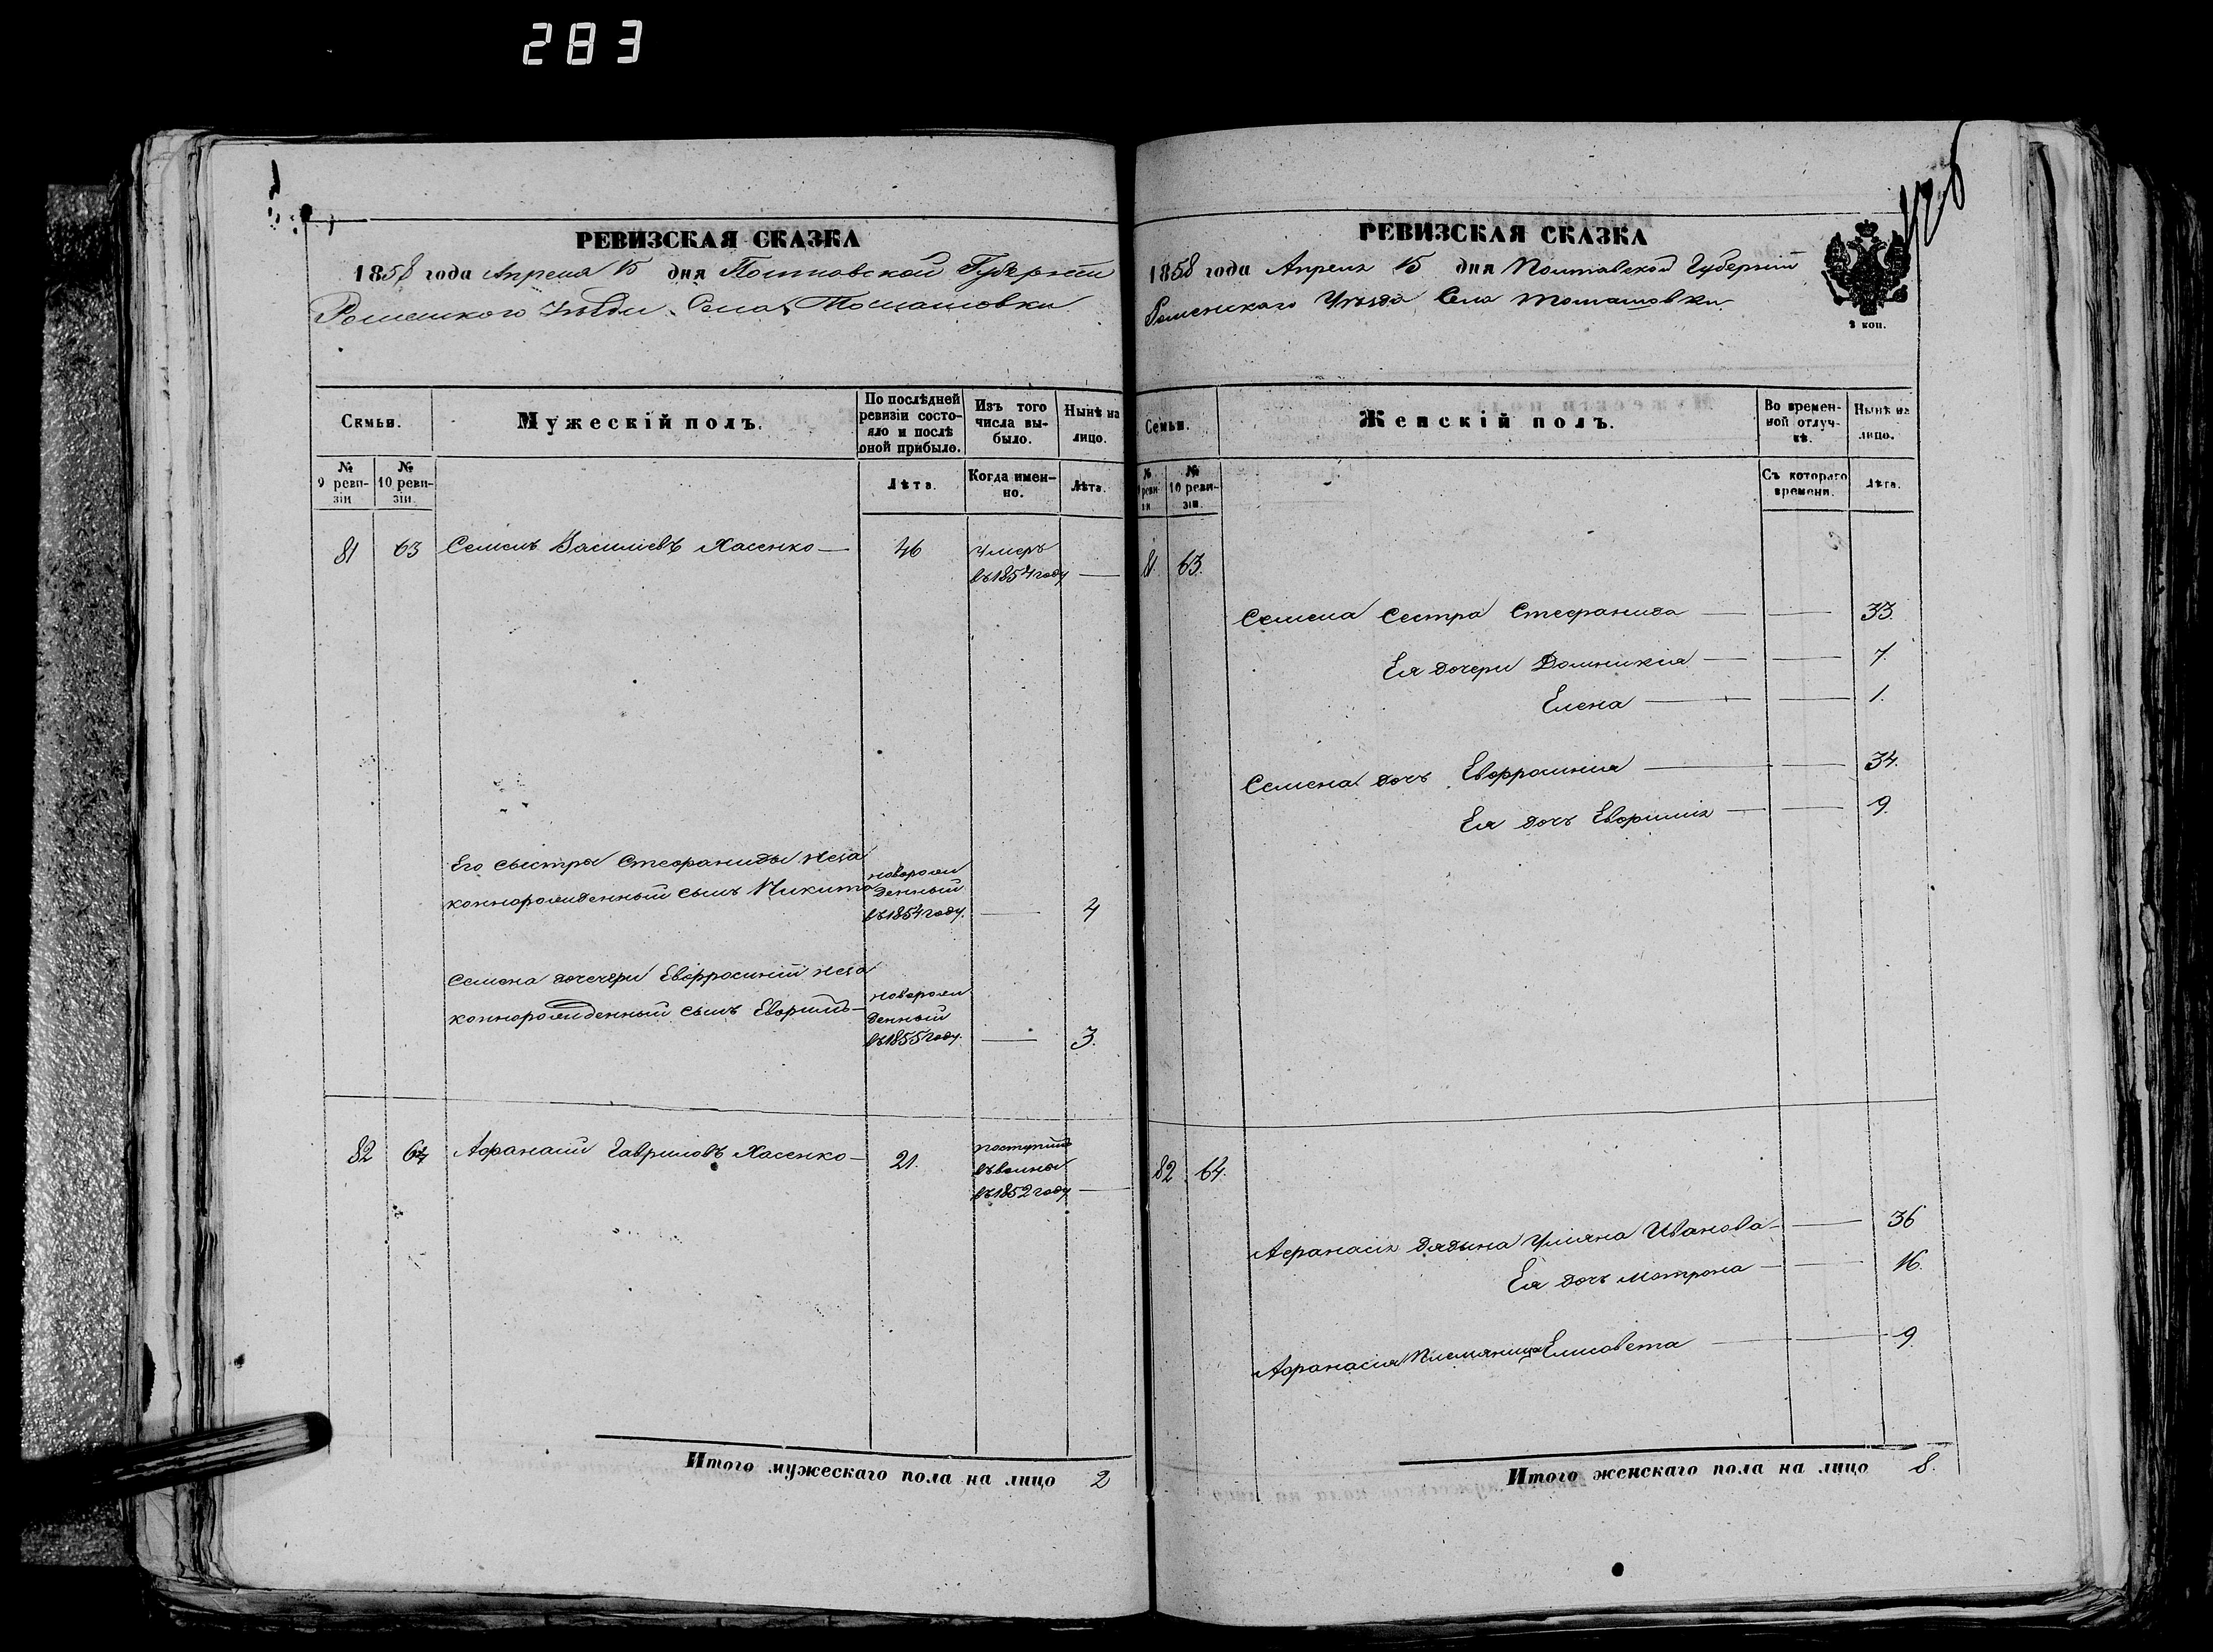 283
РЕВИЗСКАЯ СКАЗКА
1858 года Апреля 15 дня Полтавской Губерніи
Роменского Уѣзда Села Томашовки
Семьи.
Мужескій полъ.
По послѣдней ревизіи состояло и послѣ оной прибыло.
Изъ того числа выбыло.
Нынѣ на лицо.
№ 9 ревизіи
№ 10 ревизіи.
Лѣта.
Когда именно.
Лѣта.
81 63 Семенъ Василіевъ Хасенко — 46 Умеръ
въ 1854 году —
Его сыстры Стефаниды неза
коннорожденный сынъ Никита
новорож
денный
въ 1854 году. — 4
Семена дочери Евфросиніи неза
коннорожденный сынъ Евфимъ —
новорож
денный
въ 1855 году. — 3.
82 64 Афанасій Гавриловъ Хасенко — 21. поступилъ
въ 1852 году —
Итого мужескаго пола на лицо 2
РЕВИЗСКАЯ СКАЗКА
1858 года Апреля 15 дня Полтавской Губерніи
Роменскаго Уѣзда Села Томашовки
2 коп.
Семьи.
Женскій полъ.
Во временной отлучкѣ.
Нынѣ на лицо.
№ 9 ревизіи
№ 10 ревизіи.
Съ котораго времени.
Лѣта.
81. 63.
Семена Сестра Стефанида — — 33.
Ея дочери Домникія — — 7.
Елена — — 1.
Семена дочъ Евфросинія — — 34.
Ея дочъ Евфимія — — 9.
82 64.
Афанасія дядына Уліяна Иванова — — 36
Ея дочъ Мотрона — — 16.
Афанасія Племяница Елисовета — — 9.
Итого женскаго пола на лицо 8.